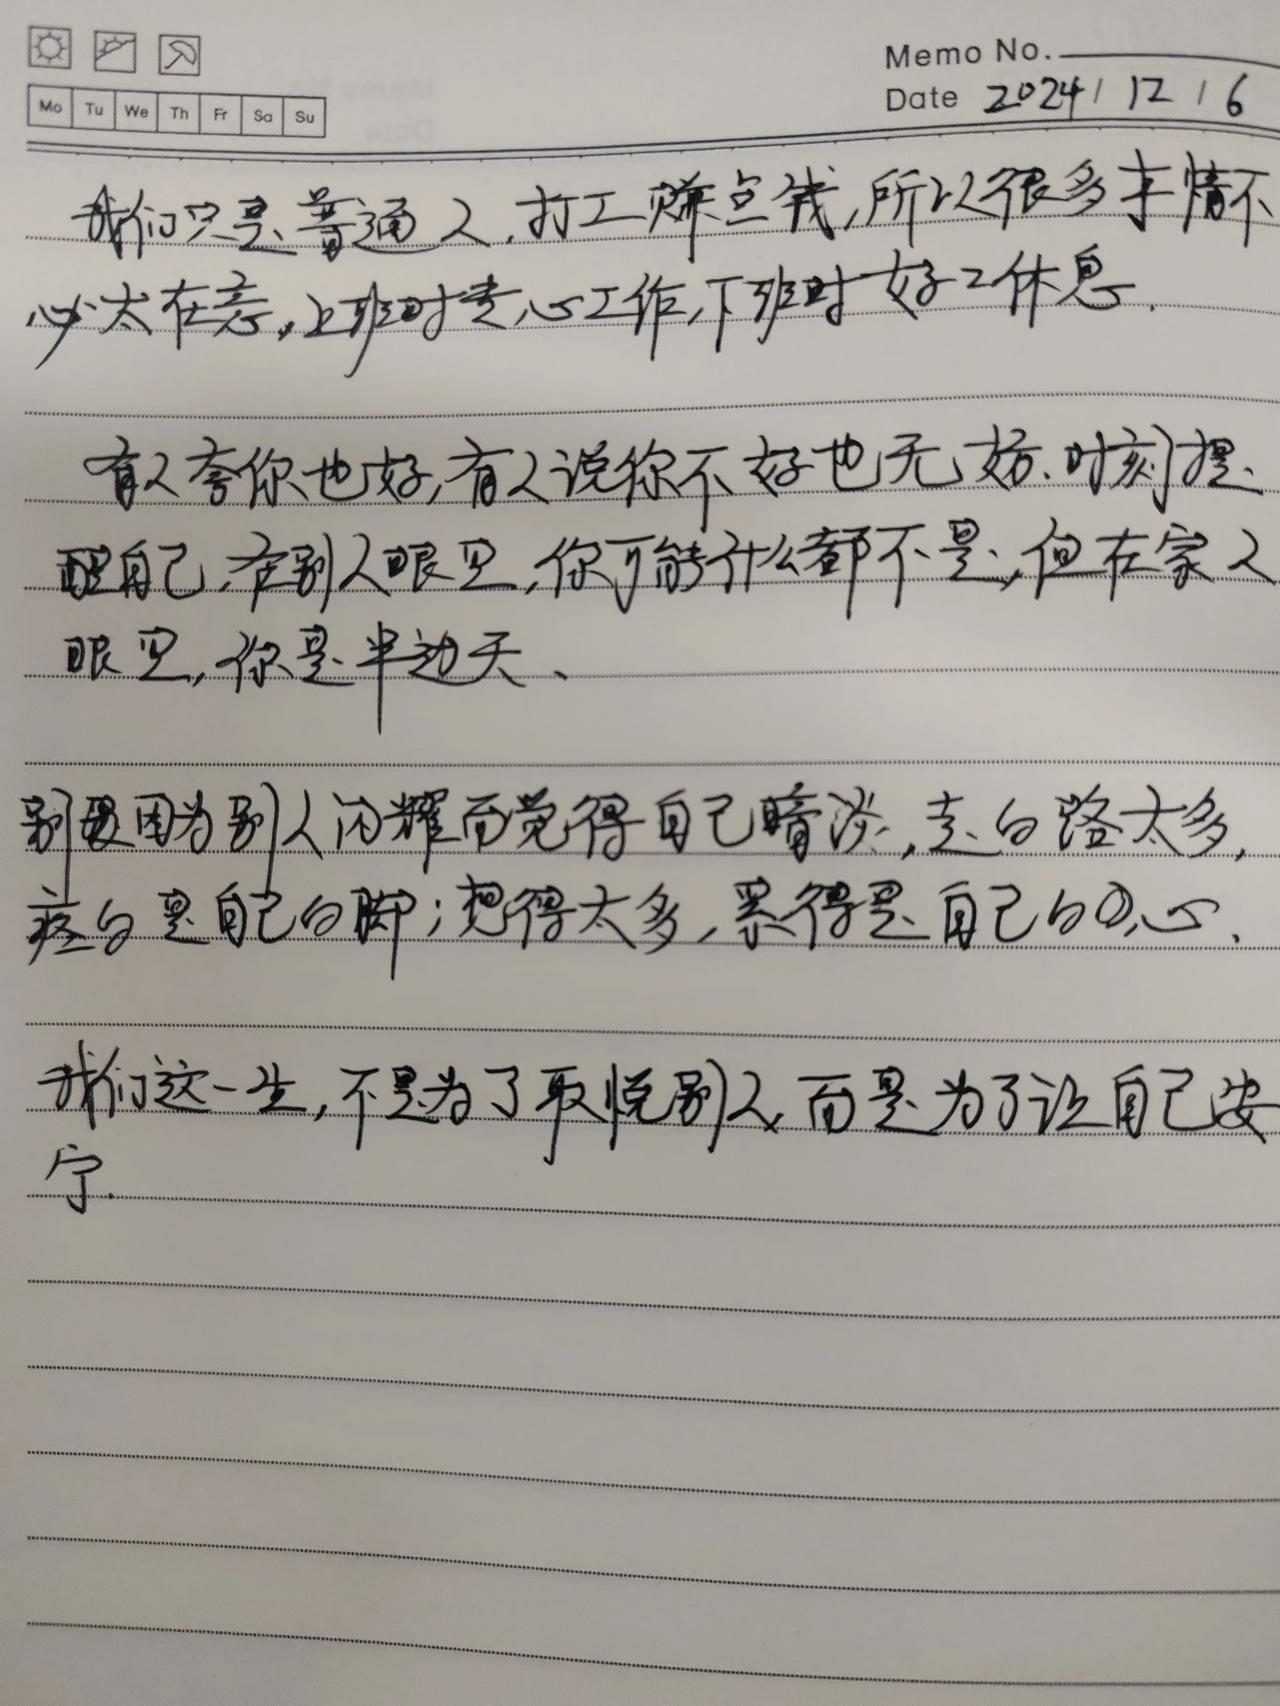 Memo No.
Date 2024/12/6
Mo Tu We Th Fr Sa Su
我们只是普通人,打工赚点钱,所以很多事情不
必太在意,上班时专心工作,下班时好好休息.
有人夸你也好,有人说你不好也无妨、时刻提
醒自己,在别人眼里,你可能什么都不是,但在家人
眼里,你是半边天、
别要因为别人闪耀而觉得自己暗淡,走的路太多,
疼的是自己的脚;想得太多,累得是自己的心、
我们这一生,不是为了取悦别人,而是为了让自己安
宁.